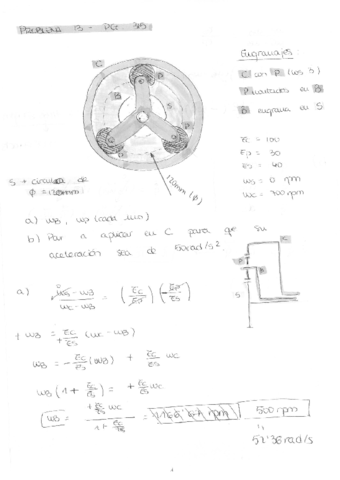 PROBLEMA 3 - PG. 315
Engranajes:
C con P (los 3)
P contactos en B
P engrana en S
zc = 100
zp = 30
zs = 40
ws = 0 rpm
wc = 700 rpm
S + círculo de
φ = 120mm
120mm (φ)
a) wB, wp (cada uno)
b) Par a aplicar en C para que su
aceleración sea de 50rad/s².
a) ws - wB / wc - wB = (zc / zp) (- zp / zs)
+ wB = zc / + zs (wc - wB)
wB = - zc / zs (wB) + zc / zs wc
wB (1 + zc / zs) = + zc / zs wc
wB = + zc / zs wc / 1 + zc / zs = 500 rpm
52'36 rad/s